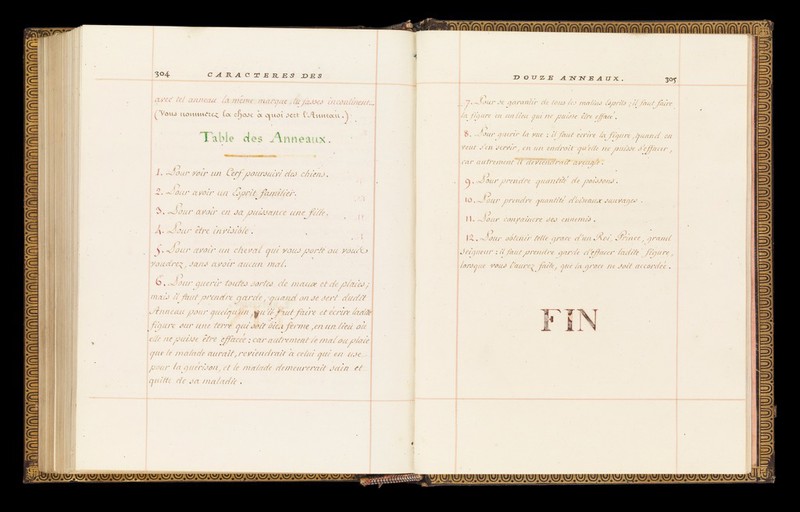 304 CARACTERES DES
avec tel anneau la même marque, tu passes incontinent
(Vous nommerez la chose à quoi sert l'Anneau.)
Table des Anneaux.
1. Pour voir un Cerf poursuivi des chiens.
2. Pour avoir un Esprit familier.
3. Pour avoir en sa puissance une fille.
4. Pour être invisible.
5. Pour avoir un cheval qui vous porte où vous
voudrez, sans avoir aucun mal.
6. Pour guerir toutes sortes de maux et de plaies;
mais il faut prendre garde, quand on se sert dudit
Anneau pour quelqu'un qu'il faut faire et écrire ladite
figure sur une terre qui soit bien ferme, en un lieu où
elle ne puisse être effacée: car autrement le mal ou plaie
que le malade aurait, reviendrait à celui qui en use
pour la guérison, et le malade demeurerait sain et
quitte de sa maladie.
DOUZE ANNEAUX. 305
7. Pour se garantir de tous les malins Esprits; il faut faire
la figure en un lieu qui ne puisse être effacé.
8. Pour guerir la vue: il faut écrire la figure, quand on
veut s'en servir, en un endroit qu'elle ne puisse s'effacer,
car autrement il deviendrait aveugle.
9. Pour prendre quantité de poissons.
10. Pour prendre quantité d'oiseaux sauvages.
11. Pour convaincre ses ennemis.
12. Pour obtenir telle grace d'un Roi, Prince, grand
Seigneur: il faut prendre garde d'effacer ladite figure,
lorsque vous l'aurez faite, que la grace ne soit accordée.
FIN